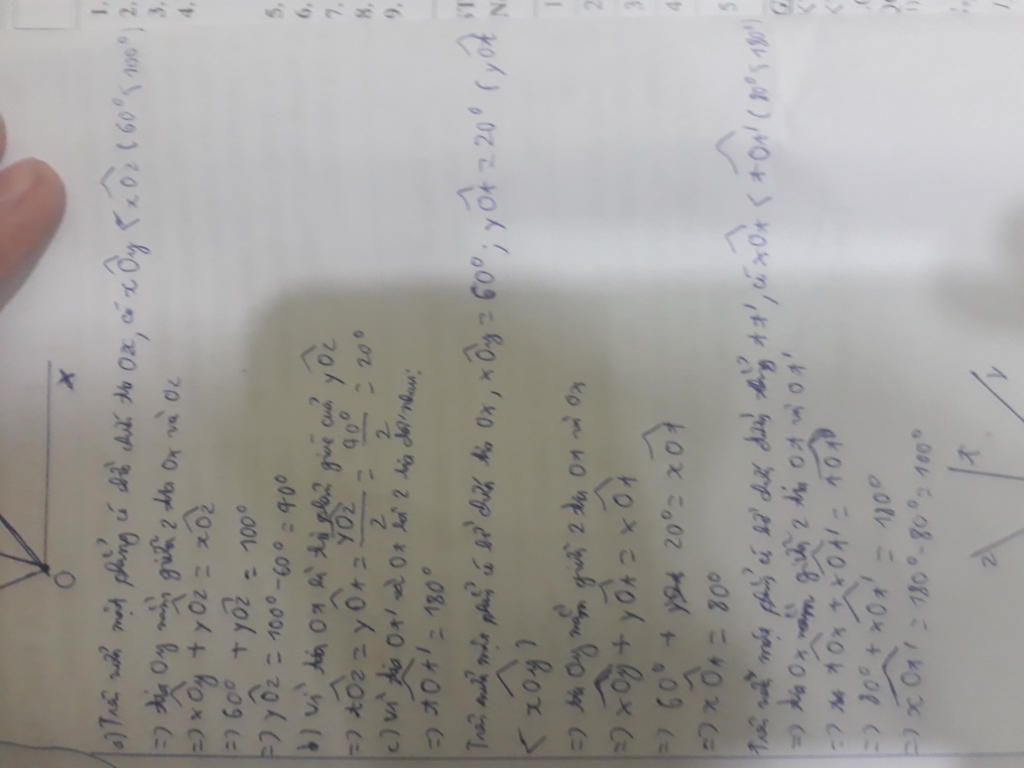 x
O
a) Trên nửa mặt phẳng có bờ chứa tia Ox, có xOy < xOz (60° < 100°)
=> tia Oy nằm giữa 2 tia Ox và Oz
=> xOy + yOz = xOz
=> 60° + yOz = 100°
=> yOz = 100° - 60° = 40°
b) Vì tia Ot là tia phân giác của yOz
=> tOz = yOt = yOz/2 = 40°/2 = 20°
c) Vì tia Ot' và Ot là 2 tia đối nhau:
=> tOt' = 180°
Trên nửa mặt phẳng có bờ chứa tia Ox, xOy = 60°; yOt = 20° (yOt
< xOy)
=> tia Oy nằm giữa 2 tia Ot và Ox
=> xOy + yOt = xOt
=> 60° + 20° = xOt
=> xOt = 80°
Trên nửa mặt phẳng có bờ chứa đường thẳng tt', có xOt < tOt' (80° < 180°)
=> tia Ox nằm giữa 2 tia Ot và Ot'
=> tOx + xOt' = tOt'
=> 80° + xOt' = 180°
=> xOt' = 180° - 80° = 100°
z
t
y
1.
2.
3.
4.
5.
6.
7.
8.
9.
ST
N
1
2
3
4
5